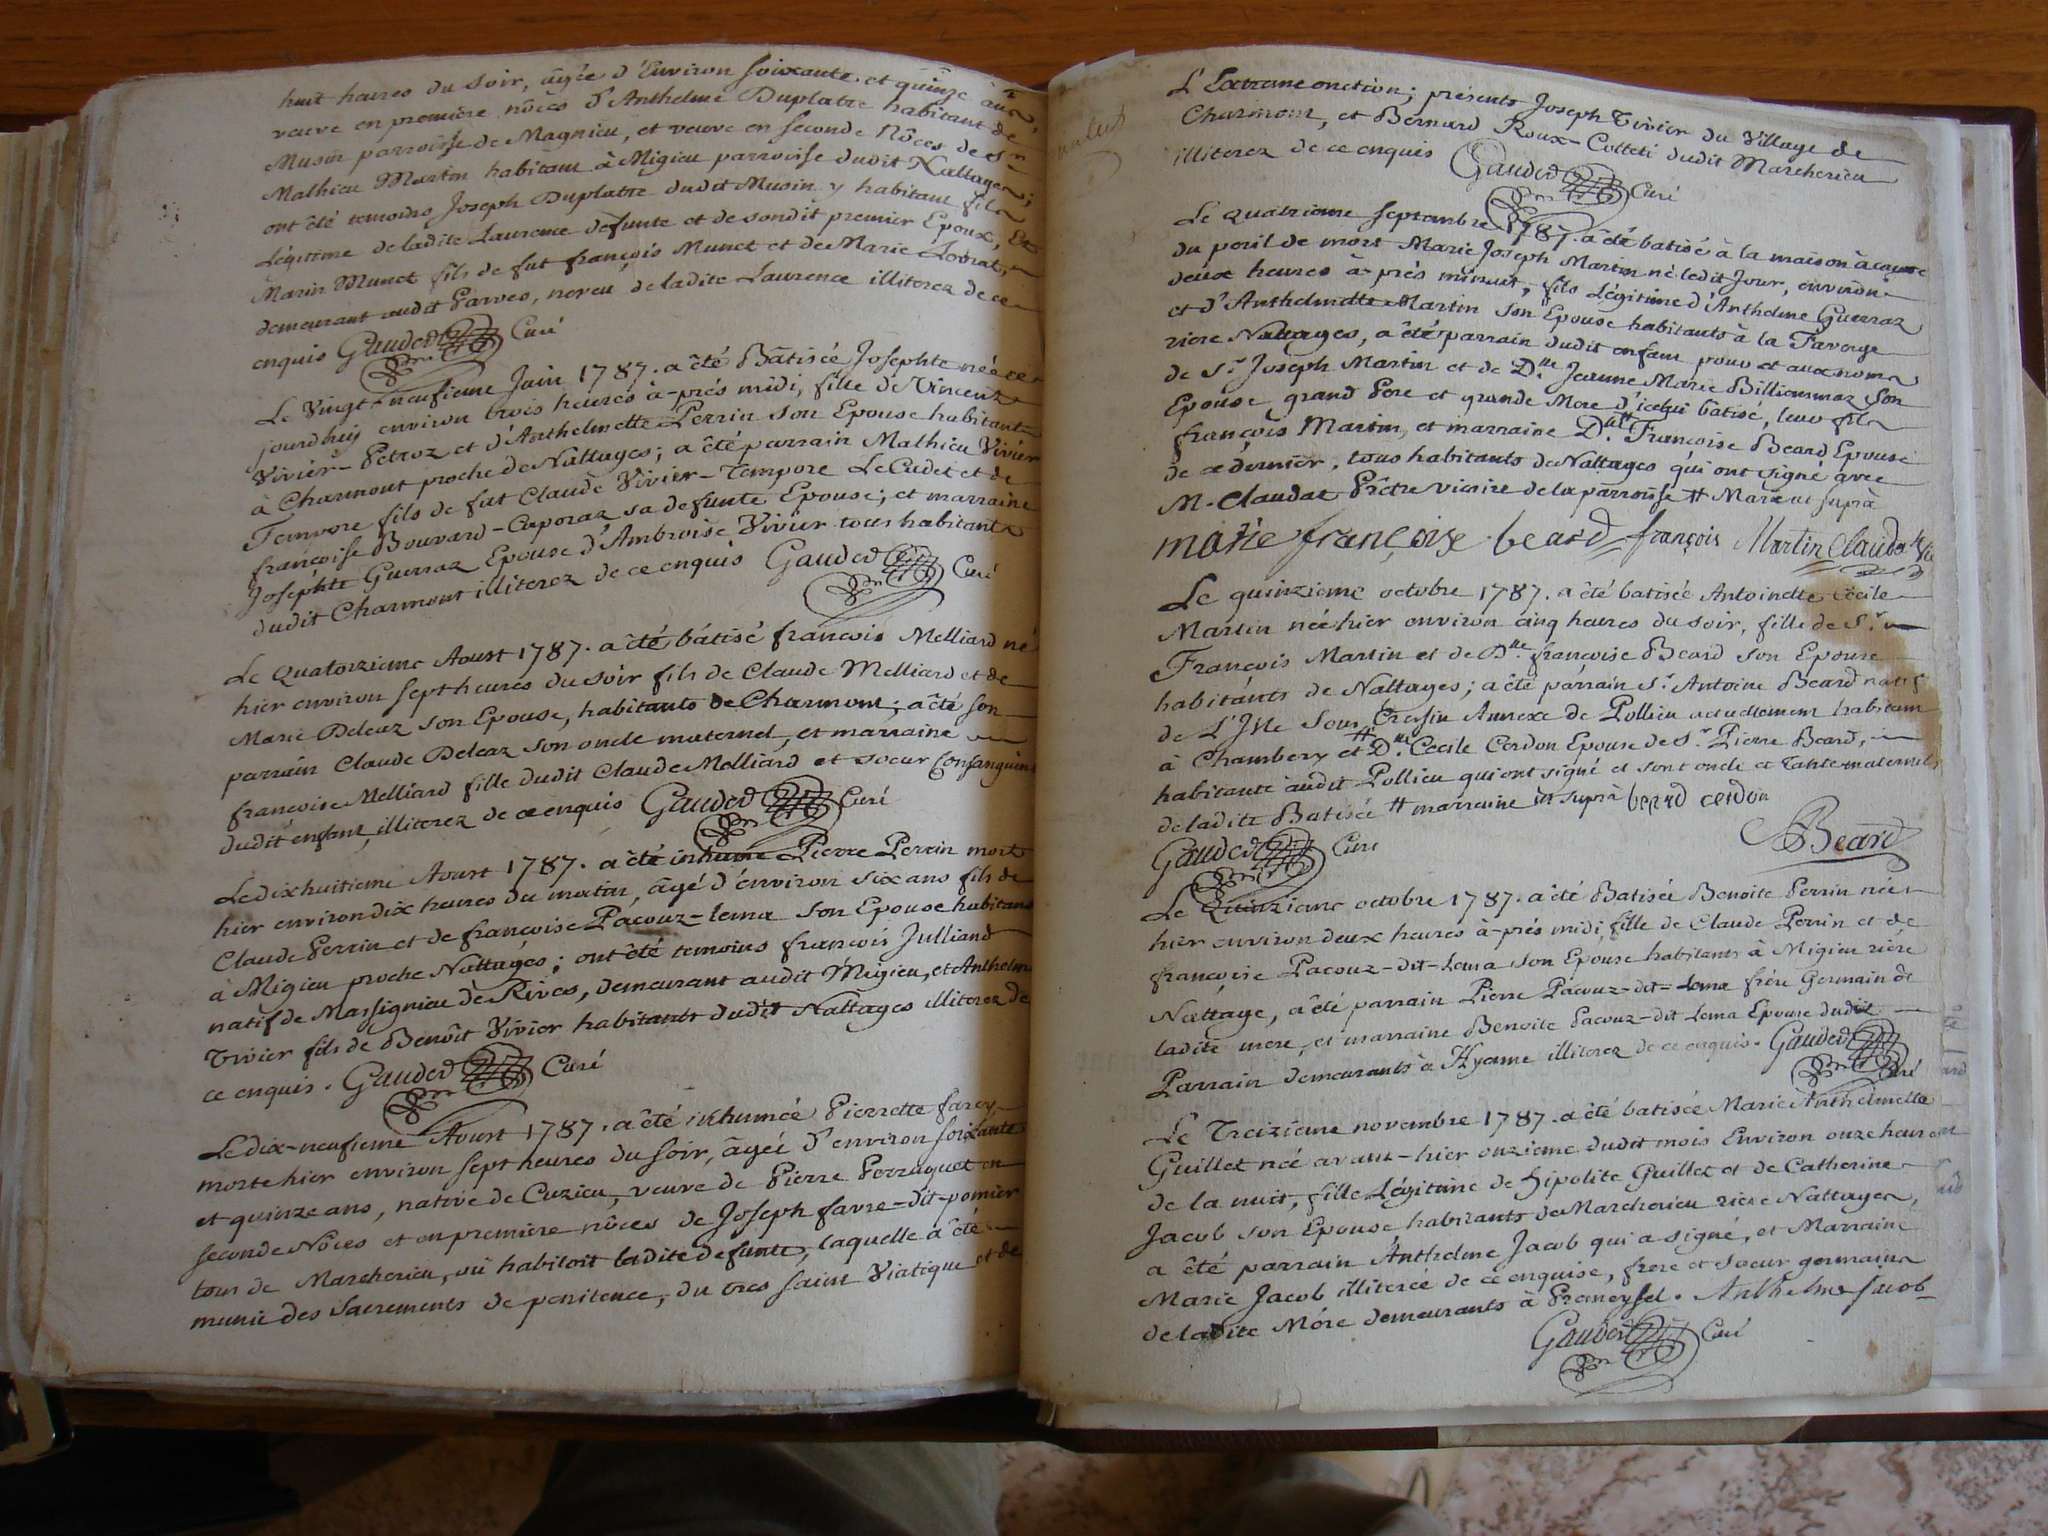 huit heures du soir, âgée d'Environ soixante et quinze ans,
veuve en premiere nôces d'Anthelme Duplatre habitant de
Musin parroisse de Magnieu, et veuve en seconde Nôces de
Mathieu Martin habitant à Migieu parroisse dudit Nattages;
ont êté temoins Joseph Duplatre dudit Musin y habitant fils
Légitime de ladite Laurence defunte et de sondit premier Epoux, Et
Marin Munet fils de fut françois Munet et de Marie
demeurant audit Parves, neveu de ladite Laurence illiterez de ce
enquis Gauder Curé
Le Vingt-neufieme Juin 1787. a êté Bâtisée Josephte née ce
jourdhuy environ trois heures à-prés midi, fille de Vincent
Vivier-Petroz et d'Anthelmette Perrin son Epouse habitants
à Charmont proche de Nattages; a êté parrain Mathieu Vivier
Tempore fils de fut Claude Vivier-Tempore Le Cadet et de
françoise Bouvard-Caporaz sa defunte Epouse; et marraine
Josephte Guerraz Epouse d'Ambroise Vivier tous habitants
dudit Charmont illiterez de ce enquis Gauder Curé
Le Quatorzieme Aoust 1787. a êté bâtisé françois Melliard né
hier environ sept heures du soir fils de Claude Melliard et de
Marie Deleaz son Epouse, habitants de Charmont; a êté son
parrain Claude Deleaz son oncle maternel, et marraine
françoise Melliard fille dudit Claude Melliard et soeur Consanguine
dudit enfant, illiterez de ce enquis Gauder Curé
Le dix huitieme Aoust 1787. a êté inhumé Pierre Perrin mort
hier environ dix heures du matin, âgé d'environ six ans fils de
Claude Perrin et de françoise Pacouz-lema son Epouse habitants
à Migieu proche Nattages; ont êté temoins françois Julliand
natif de Massignieu de Rives, demeurant audit Migieu, et Anthelme
Vivier fils de Benoît Vivier habitants dudit Nattages illiterez de
ce enquis. Gauder Curé
Le dix-neufieme Aoust 1787. a êté inhumée Pierrette favre,
morte hier environ sept heures du soir, âgée d'environ soixante
et quinze ans, native de Cuzieu, veuve de Pierre Perruquet en
seconde Nôces et en premiere nôces de Joseph favre-dit-pomier
tous de Marcherieu, où habitoit ladite defunte, laquelle a êté
munie des Sacrements de penitence, du tres saint Viatique et de
L'Extremeonction; présents Joseph Vivier du Village de
Charmont, et Bernard Roux-Colleti dudit Marcherieu
illiterez de ce enquis Gauder Curé
Le quatrieme septembre 1787. a êté batisé à la maison à cause
du peril de mort Marie Joseph Martin né ledit Jour, environ
deux heures à-prés minuit, fils Légitime d'Anthelme Guerraz
et d'Anthelmette Martin son Epouse habitants à la Faverge
riere Nattages, a êté parrain dudit enfant pour et aux noms
de Sr. Joseph Martin et de Dlle Jeanne Marie Billiermaz son
Epouse grand Pere et grande Mere d'icelui bâtisé, leur fils
françois Martin, et marraine Dlle. # Françoise Beard Epouse
de ce dernier, tous habitants de Nattages qui ont signé avec
M. Claudat Prêtre vicaire de la parroisse # Marie ut suprà
marie françoise beard françois Martin Claudat
Le quinzieme octobre 1787. a êté batisée Antoinette Cécile
Martin née hier environ cinq heures du soir, fille de Sr.
François Martin et de Dlle françoise Beard son Epouse
habitánts de Nattages; a êté parrain Sr. Antoine Beard natif
de L'Isle sous Cressin Annexe de Pollieu actuellement habitant
à Chambery et # Dlle. Cecile Cerdon Epouse de Sr. Pierre Beard,
habitante audit Pollieu qui ont signé et sont oncle et Tante maternels
de ladite Batisée # marraine ut suprà berard cerdon
Gauder Curé ABeard
Le Quinzieme octobre 1787. a êté Batisée Benoite Perrin née
hier environ deux heures à-prés midi fille de Claude Perrin et de
françoise Pacouz-dit-Lema son Epouse habitants à Migieu riere
Nattage, a êté parrain Pierre Pacouz-dit-Lema frére Germain de
ladite mere, et marraine Benoite Pacouz-dit Lema Epouse dudit
Parrain demeurants à Hyenne illiterez de ce enquis. Gauder
Curé
Le Treizieme novembre 1787. a êté batisée Marie Anthelmette
Guillet née avant-hier onzieme dudit mois Environ onze heures
de la nuit, fille Légitime de hipolite Guillet et de Catherine
Jacob son Epouse habitants de Marcherieu riere Nattages,
a êté parrain Anthelme Jacob qui a signé, et Marraine
Marie Jacob illiterée de ce enquise, frere et soeur germains
de ladite Mére demeurants à Anthelme Jacob
Gauder Curé